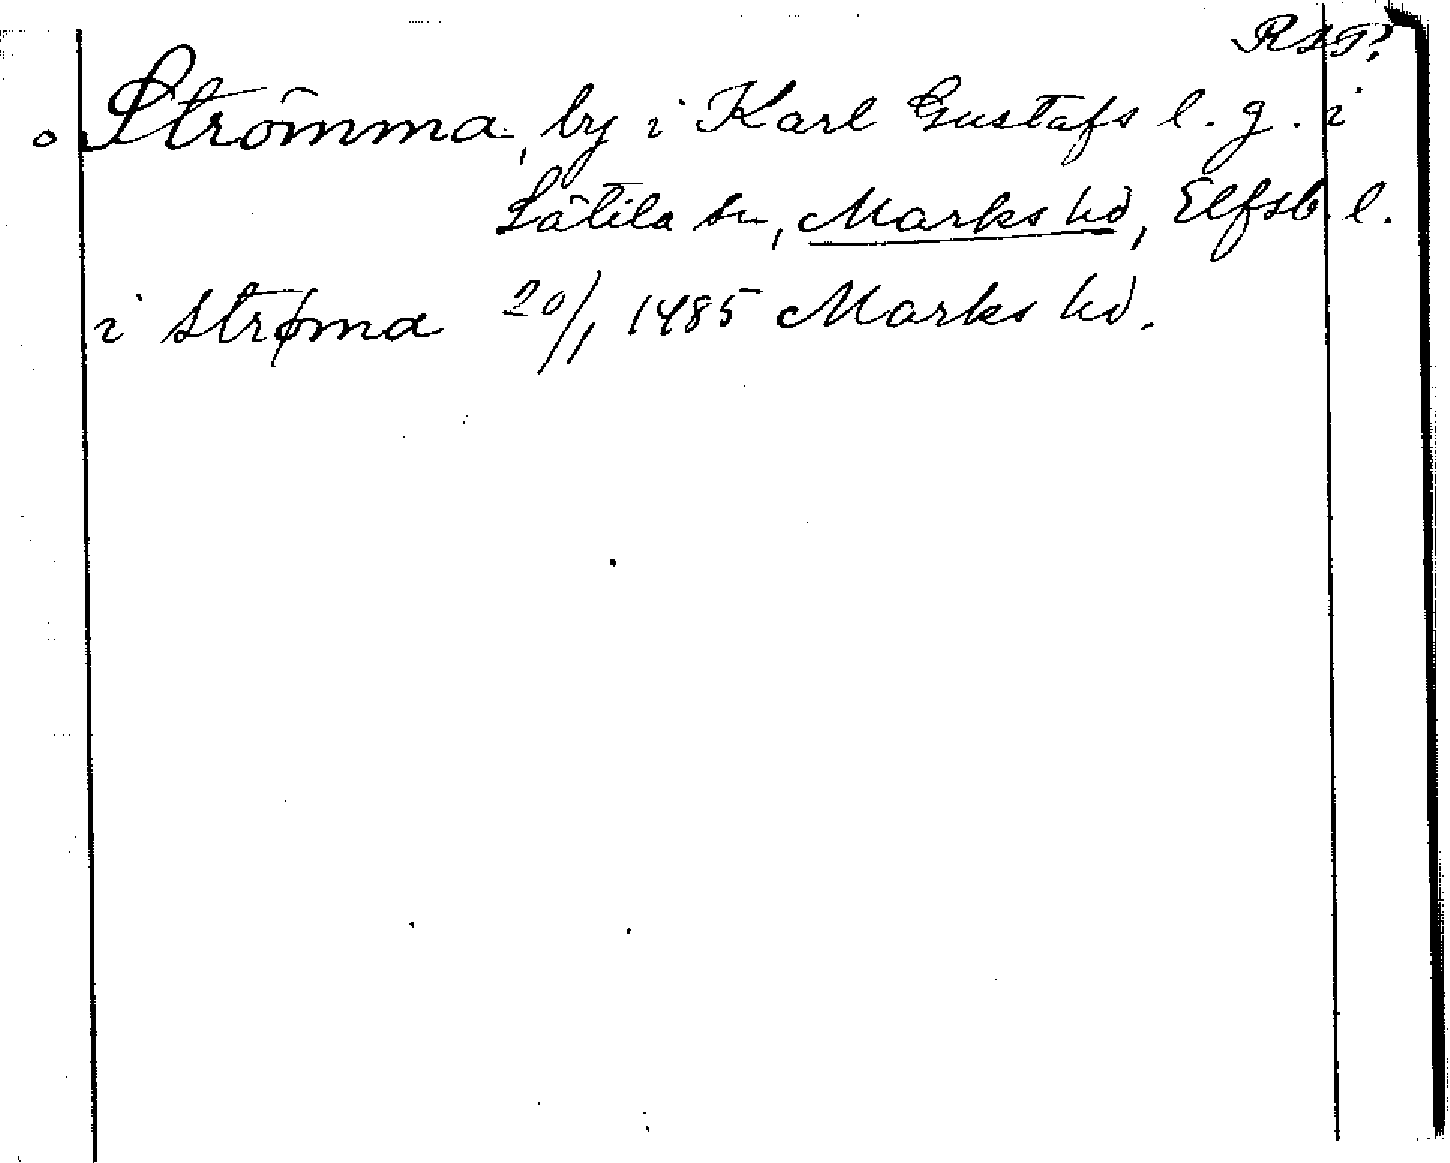 RST?
Strömma, by i Karl Gustafs l. g. i
Sätila sn, Marks hd, Elfsb. l.
i strøma 20/1 1485 Marks hd.